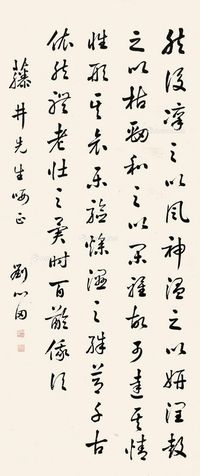 然後凜之以風神溫之以妍潤鼓
之以枯勁和之以閑雅故可達其情
性形其哀樂驗燥濕之殊節千古
依然體老壯之異時百齡俄頃
藤井先生哂正
劉